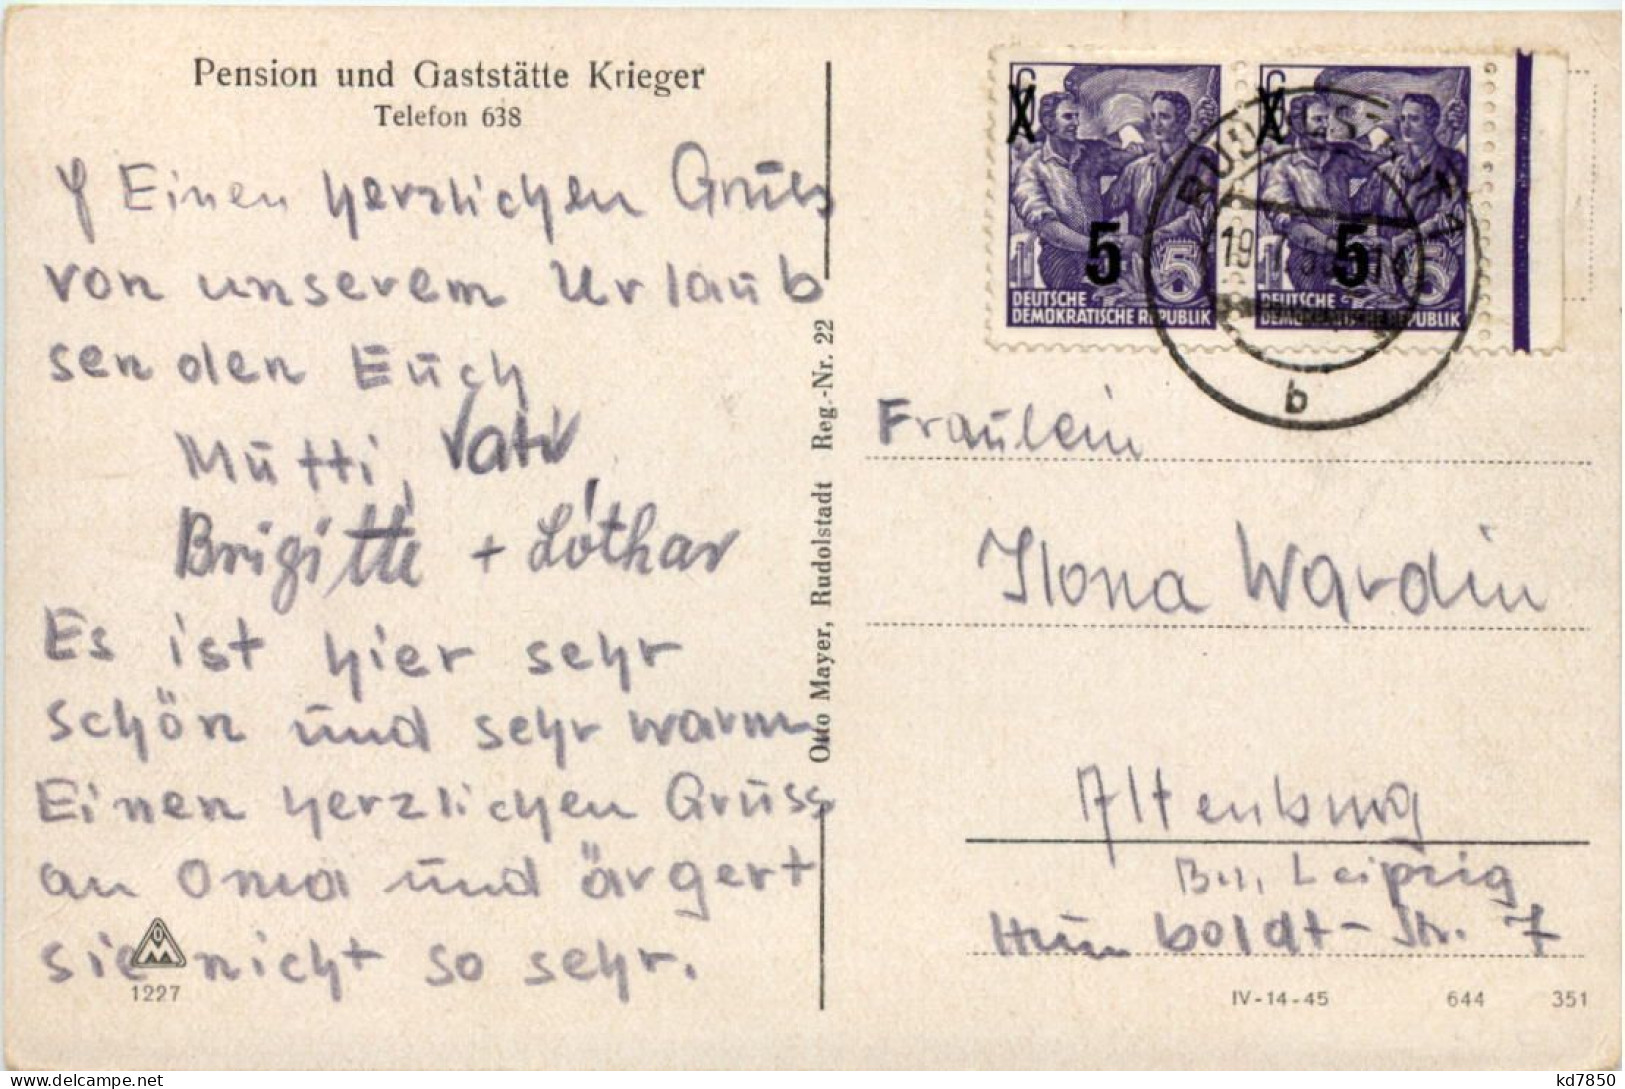 Pension und Gaststätte Krieger
Telefon 638
Einen herzlichen Gruss
von unserem Urlaub
senden Euch
Mutti, Vati
Brigitte + Lothar
Es ist hier sehr
schön und sehr warm
Einen herzlichen Gruss
an Oma und ärgert
sie nicht so sehr.
1227
Otto Mayer, Rudolstadt Reg.-Nr. 22
5 5
DEUTSCHE
DEMOKRATISCHE REPUBLIK
5 5
DEUTSCHE
DEMOKRATISCHE REPUBLIK
b
Fräulein
Ilona Wardin
Altenburg
Bez. Leipzig
Humboldt-Str. 7
IV-14-45 644 351
kd7850